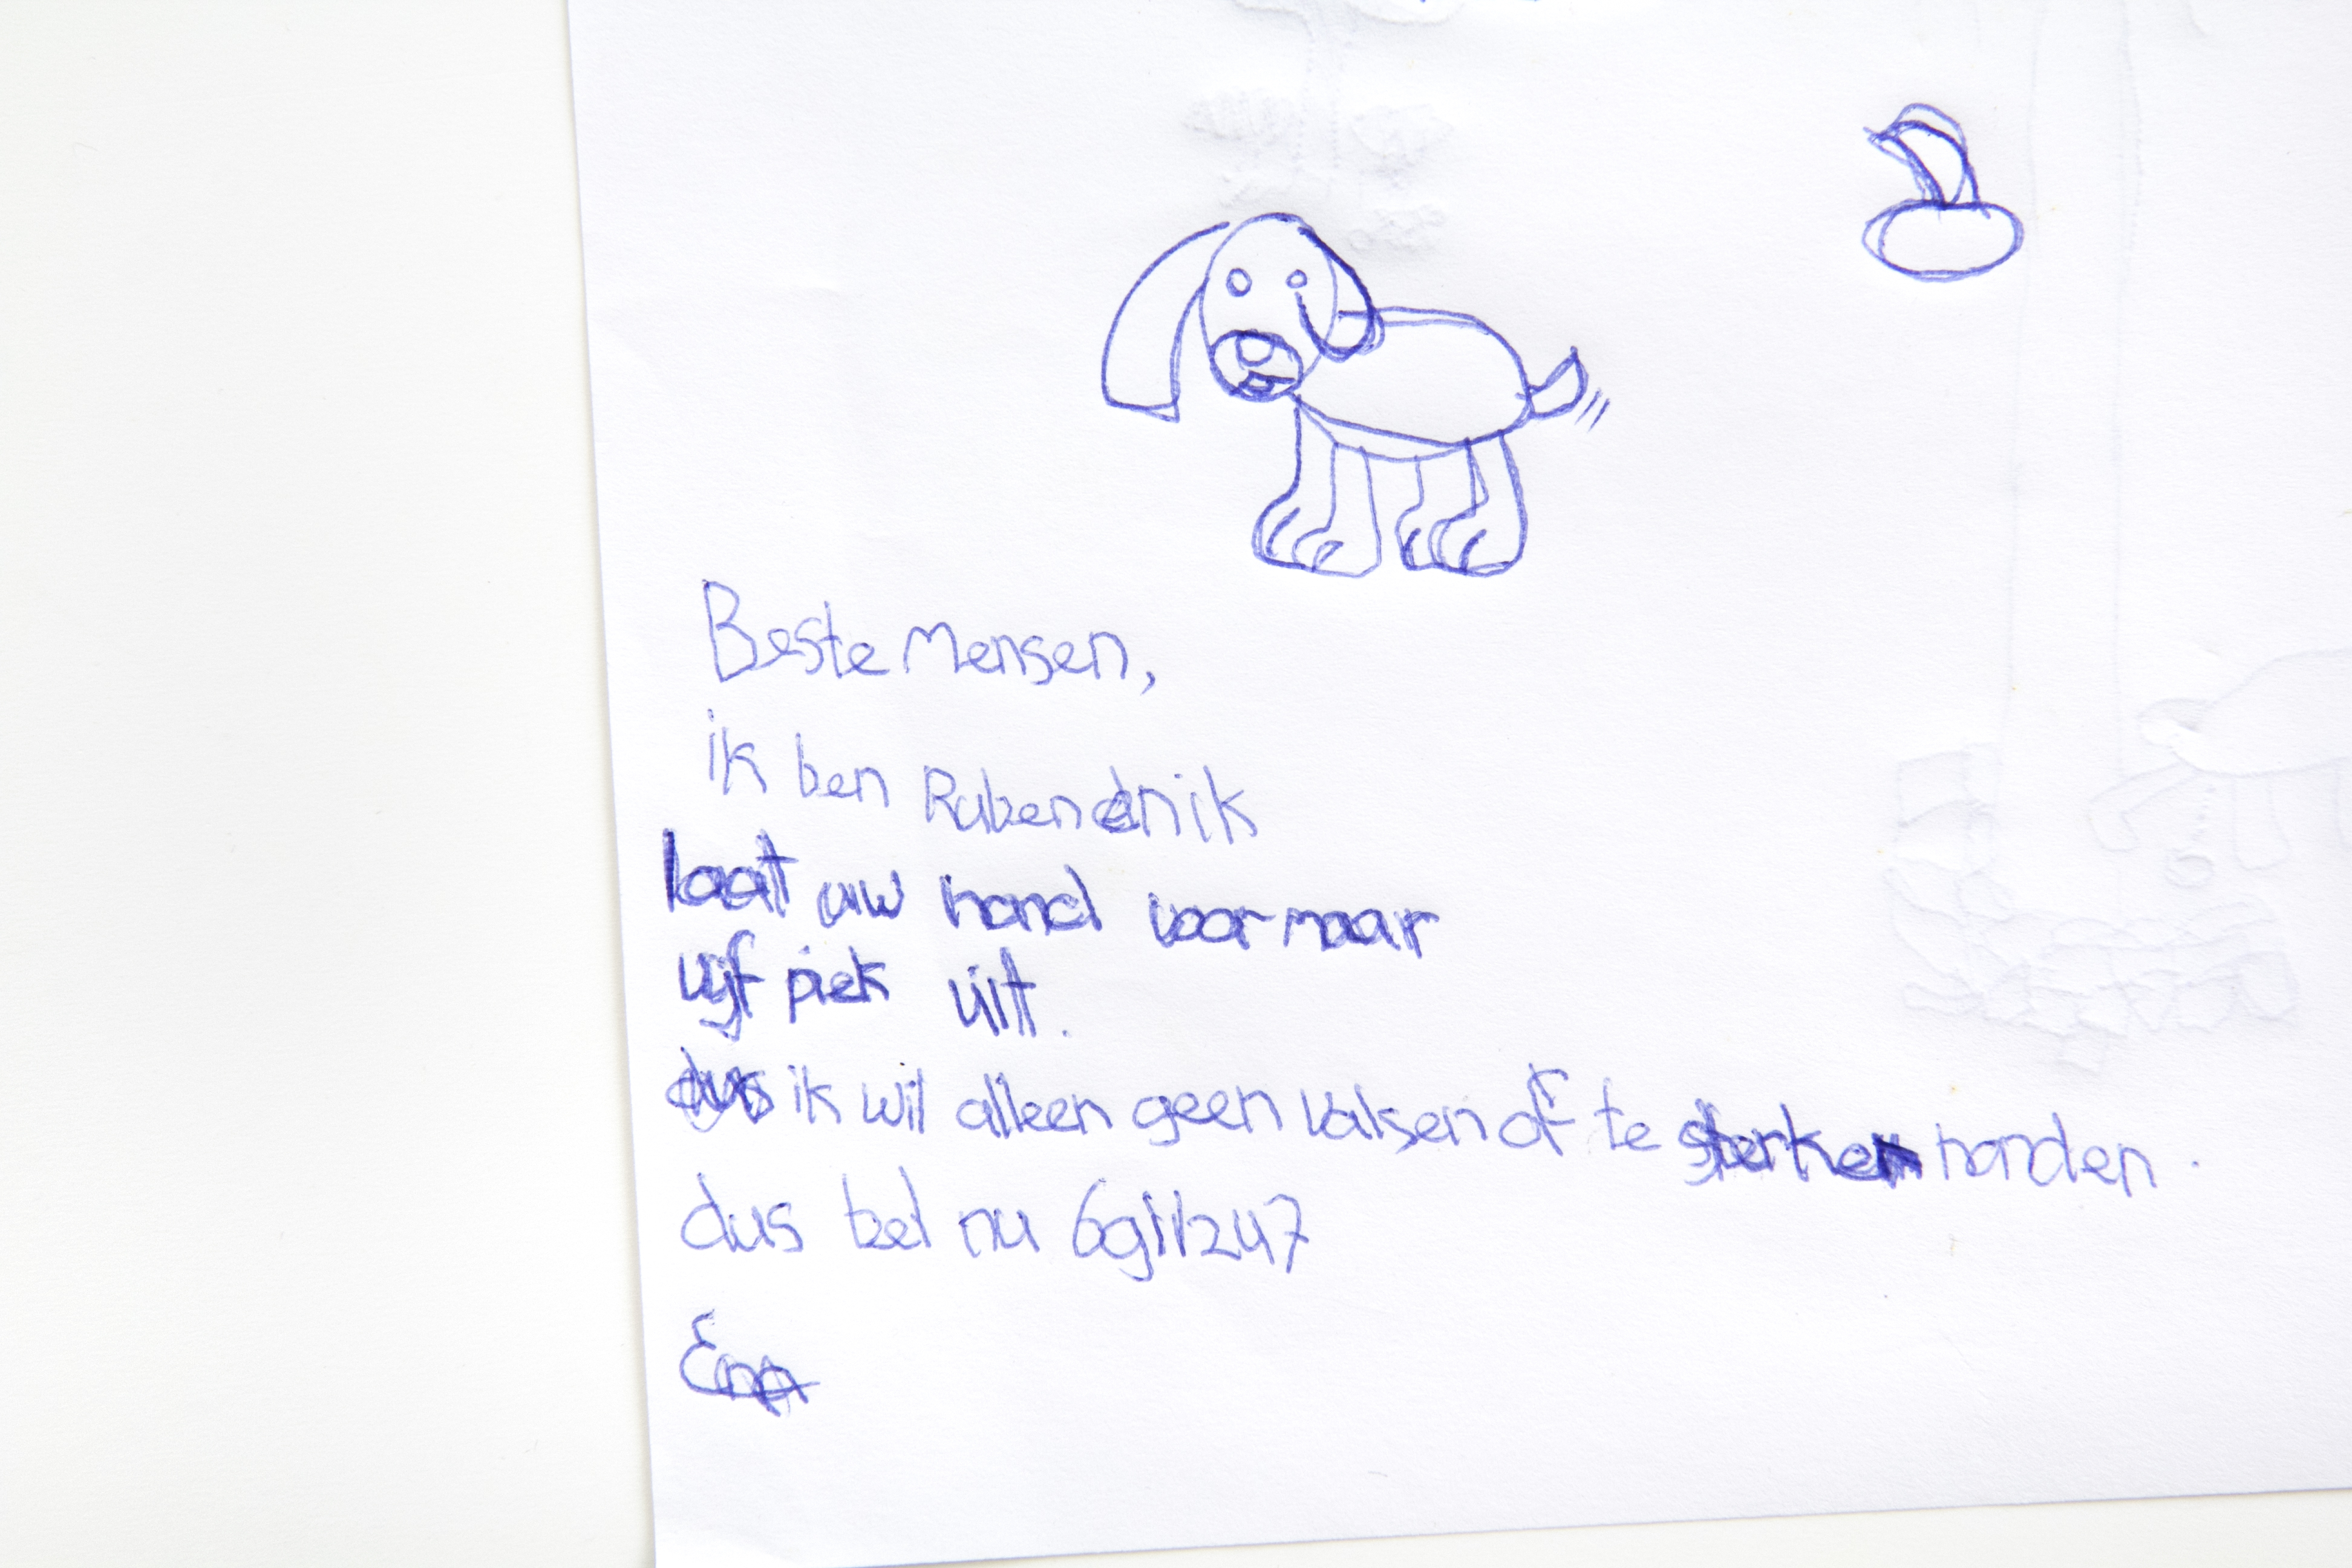 Beste Mensen,
ik ben Ruben en ik
laat uw hond voor maar
vijf piek uit.
dus ik wil alleen geen valsen of te sterken honden.
dus bel nu 6911247